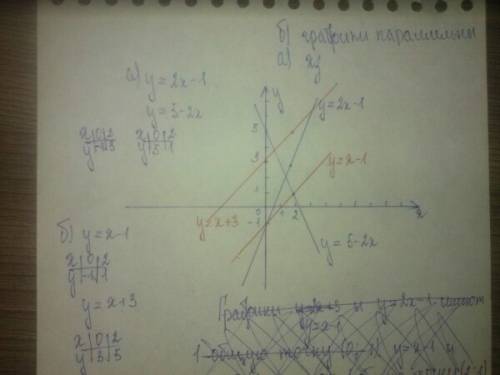 б) графики параллельны
а)
а) y = 2x-1
y = 5-2x
x|0|2
y|-1|3
x|0|2
y|5|1
y
y=2x-1
5
3
1
y=x-1
0 1 2
x
-1
y=x+3
y=5-2x
б) y = x-1
x|0|2
y|-1|1
y = x+3
x|0|2
y|3|5
Графики y=x+3 и y=2x-1 имеют
y=x-1
1 общую точку (0;-1) y=x-1 и